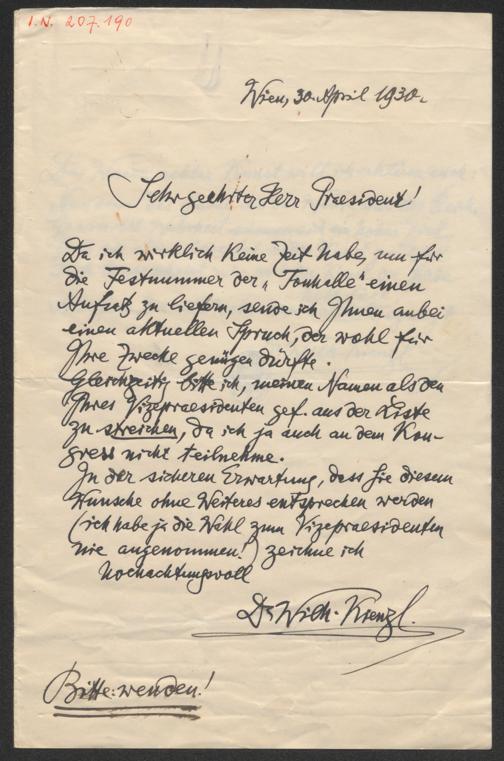 I.N. 207.190
Wien, 30. April 1930.
Sehr geehrter Herr Praesident!
Da ich wirklich keine Zeit habe, um für
die Festnummer der „Tonhalle" einen
Aufsatz zu liefern, sende ich Ihnen anbei
einen aktuellen Spruch, der wohl für
Ihre Zwecke genügen dürfte.
Gleichzeitig bitte ich, meinen Namen als den
Ihres Vizepraesidenten gef. aus der Liste
zu streichen, da ich ja auch an dem Kon-
gress nicht teilnehme.
In der sicheren Erwartung, dass Sie diesem
Wunsche ohne Weiteres entsprechen werden
(ich habe ja die Wahl zum Vizepraesidenten
nie angenommen!) zeichne ich
hochachtungsvoll
Dr Wilh. Kienzl.
Bitte wenden!